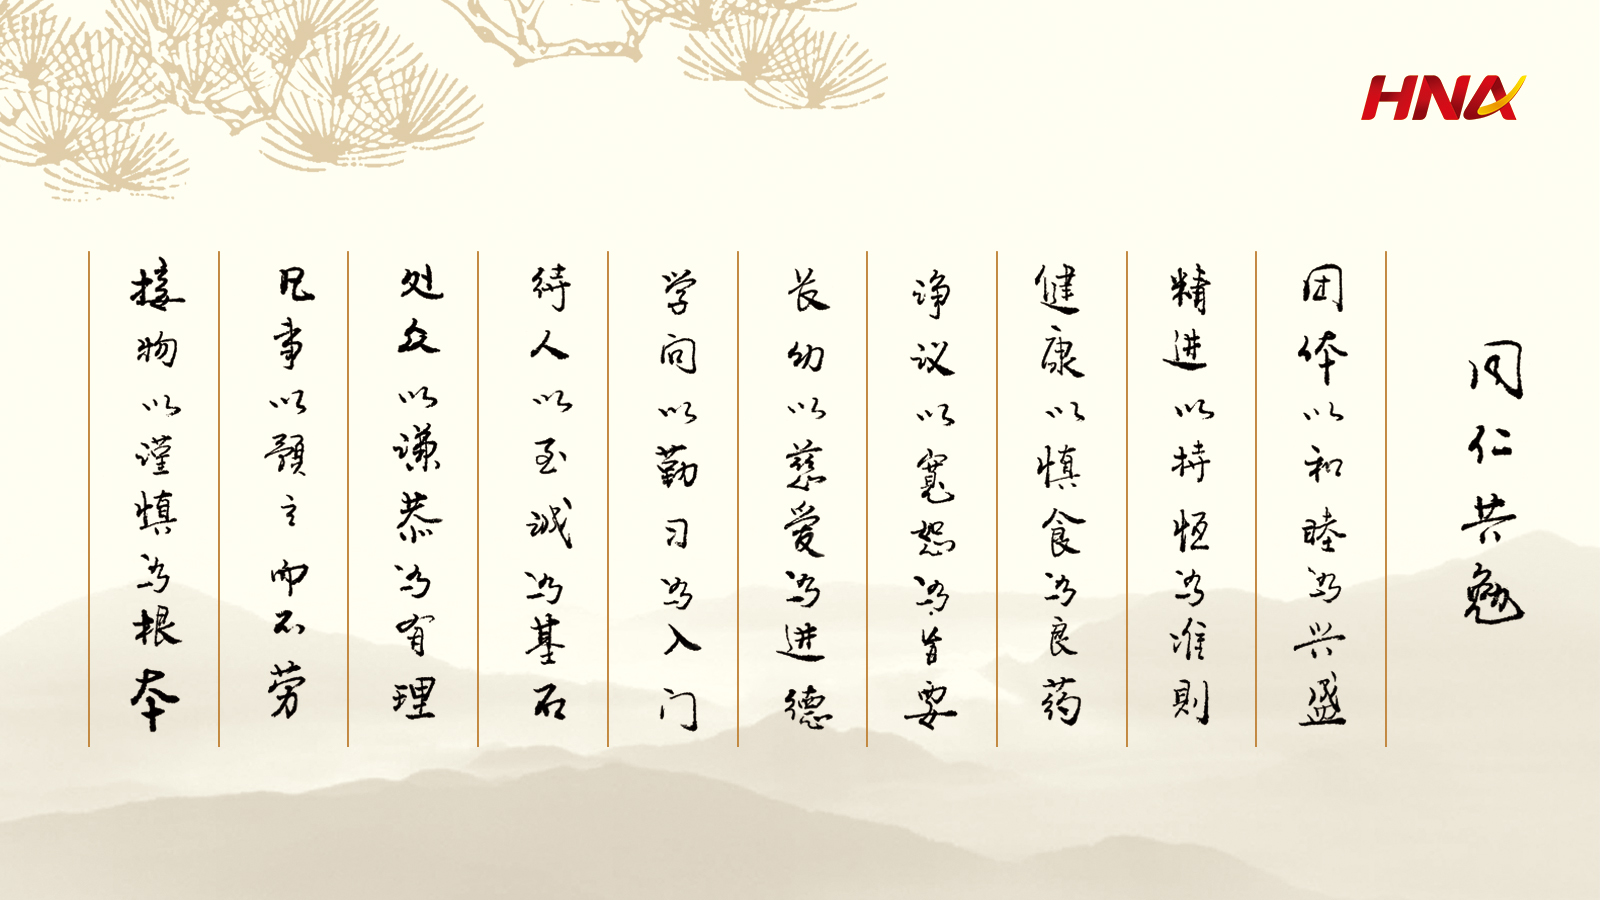 HNA
同仁共勉
团体以和睦为兴盛
精进以持恒为准則
健康以慎食为良药
诤议以寬恕为旨要
长幼以慈爱为进德
学问以勤习为入门
待人以至诚为基石
处众以谦恭为有理
凡事以預立而不劳
接物以谨慎为根本